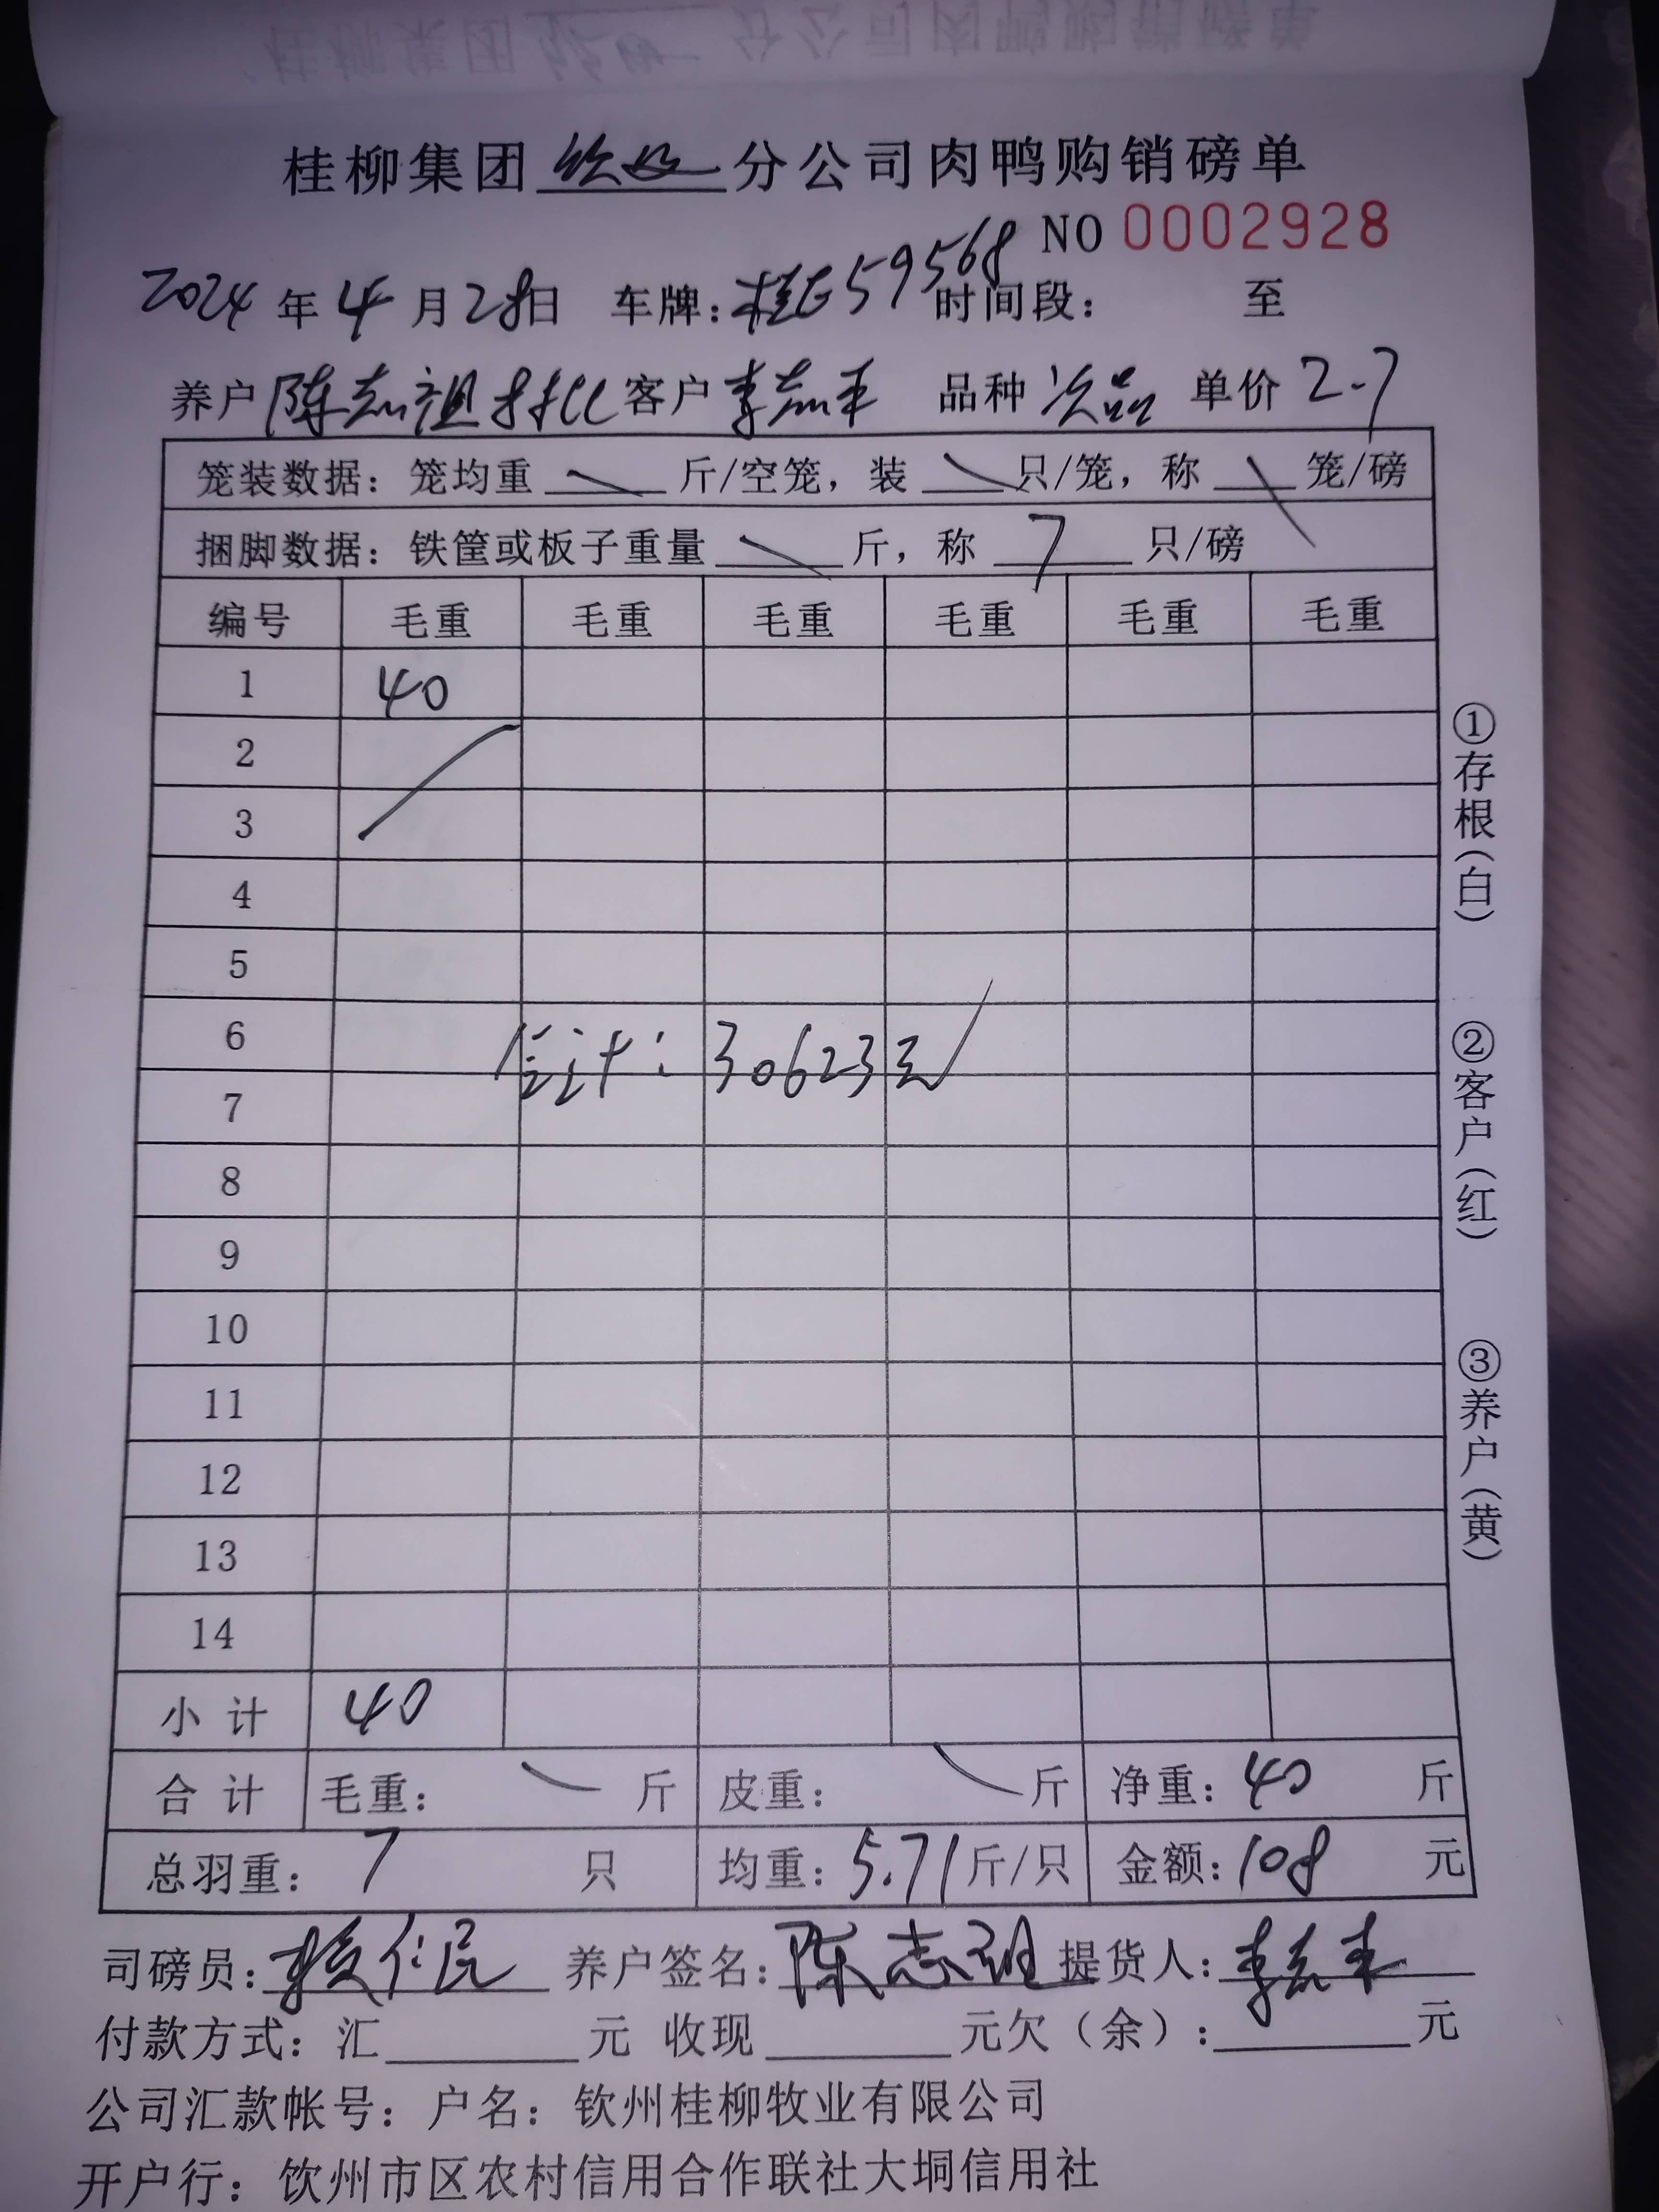 桂柳集团 分公司肉鸭购销磅单
NO 0002928
2024年4月28日 车牌:桂E59568 时间段: 至
养户 陈志祖 客户 李 品种 次品 单价 2.7
笼装数据: 笼均重 斤/空笼, 装 只/笼, 称 笼/磅
捆脚数据: 铁筐或板子重量 斤, 称 7 只/磅
编号 毛重 毛重 毛重 毛重 毛重 毛重
1 40
2
3
4
5
6
合计: 30623元
7
8
9
10
11
12
13
14
小计 40
合计 毛重: 斤 皮重: 斤 净重: 40 斤
总羽重: 7 只 均重: 5.71 斤/只 金额: 108 元
司磅员: 仁民 养户签名: 陈志祖 提货人: 李
付款方式: 汇 元 收现 元欠(余): 元
公司汇款帐号: 户名: 钦州桂柳牧业有限公司
开户行: 饮州市区农村信用合作联社大垌信用社
①存根(白)
②客户(红)
③养户(黄)